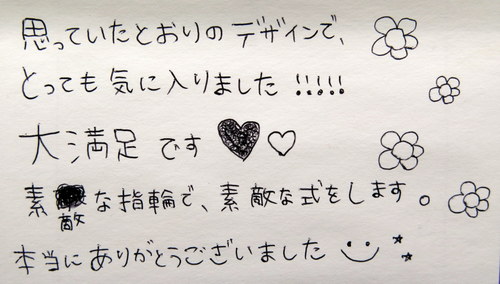 思っていたとおりのデザインで、
とっても気に入りました!!!!!
大満足です♥♡
素敵な指輪で、素敵な式をします。
本当にありがとうございました